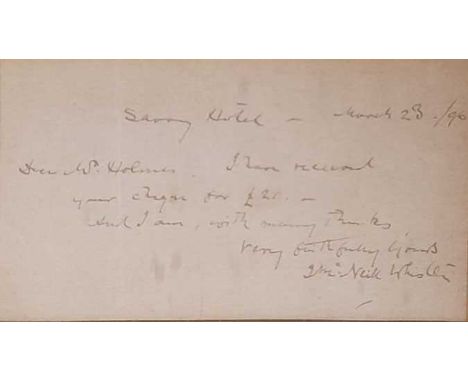 Savoy Hotel - March 23. /96
Dear Mr. Holmes. I have received
your cheque for £21. -
And I am, with many thanks
Very faithfully Yours
J McNeill Whistler